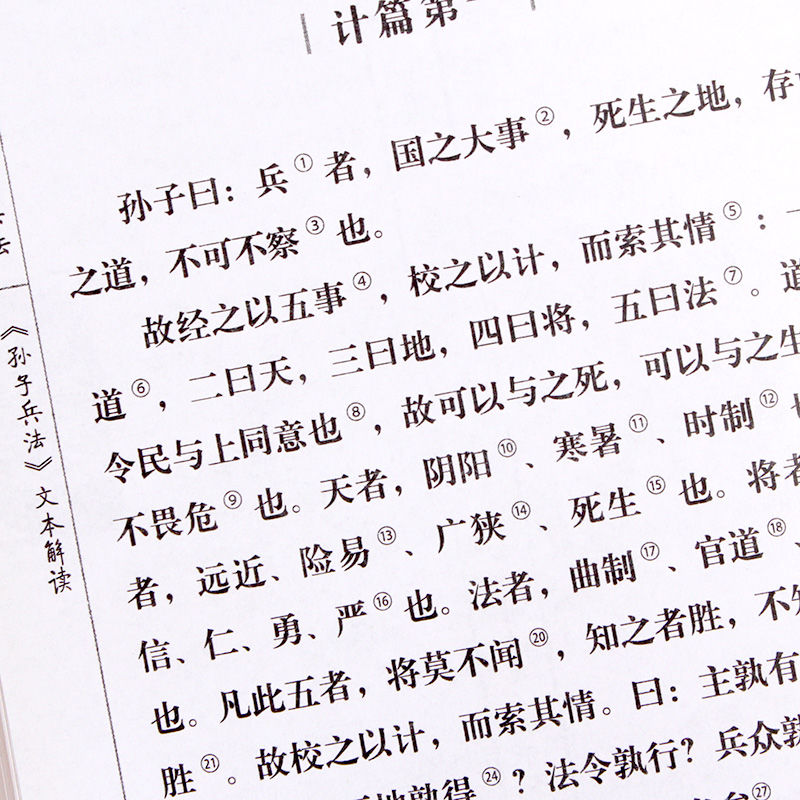 计篇第一
孙子曰：兵①者，国之大事②，死生之地，存
之道，不可不察③也。
故经之以五事④，校之以计，而索其情⑤：一
道⑥，二曰天，三曰地，四曰将，五曰法⑦。道
令民与上同意也⑧，故可以与之死，可以与之生
不畏危⑨也。天者，阴阳⑩、寒暑⑪、时制⑫
者，远近、险易⑬、广狭⑭、死生⑮也。将者
信、仁、勇、严⑯也。法者，曲制⑰、官道⑱、
也。凡此五者，将莫不闻⑳，知之者胜，不知
胜㉑。故校之以计，而索其情。曰：主孰有
地孰得㉔？法令孰行？兵众孰
㉗
《孙子兵法》文本解读